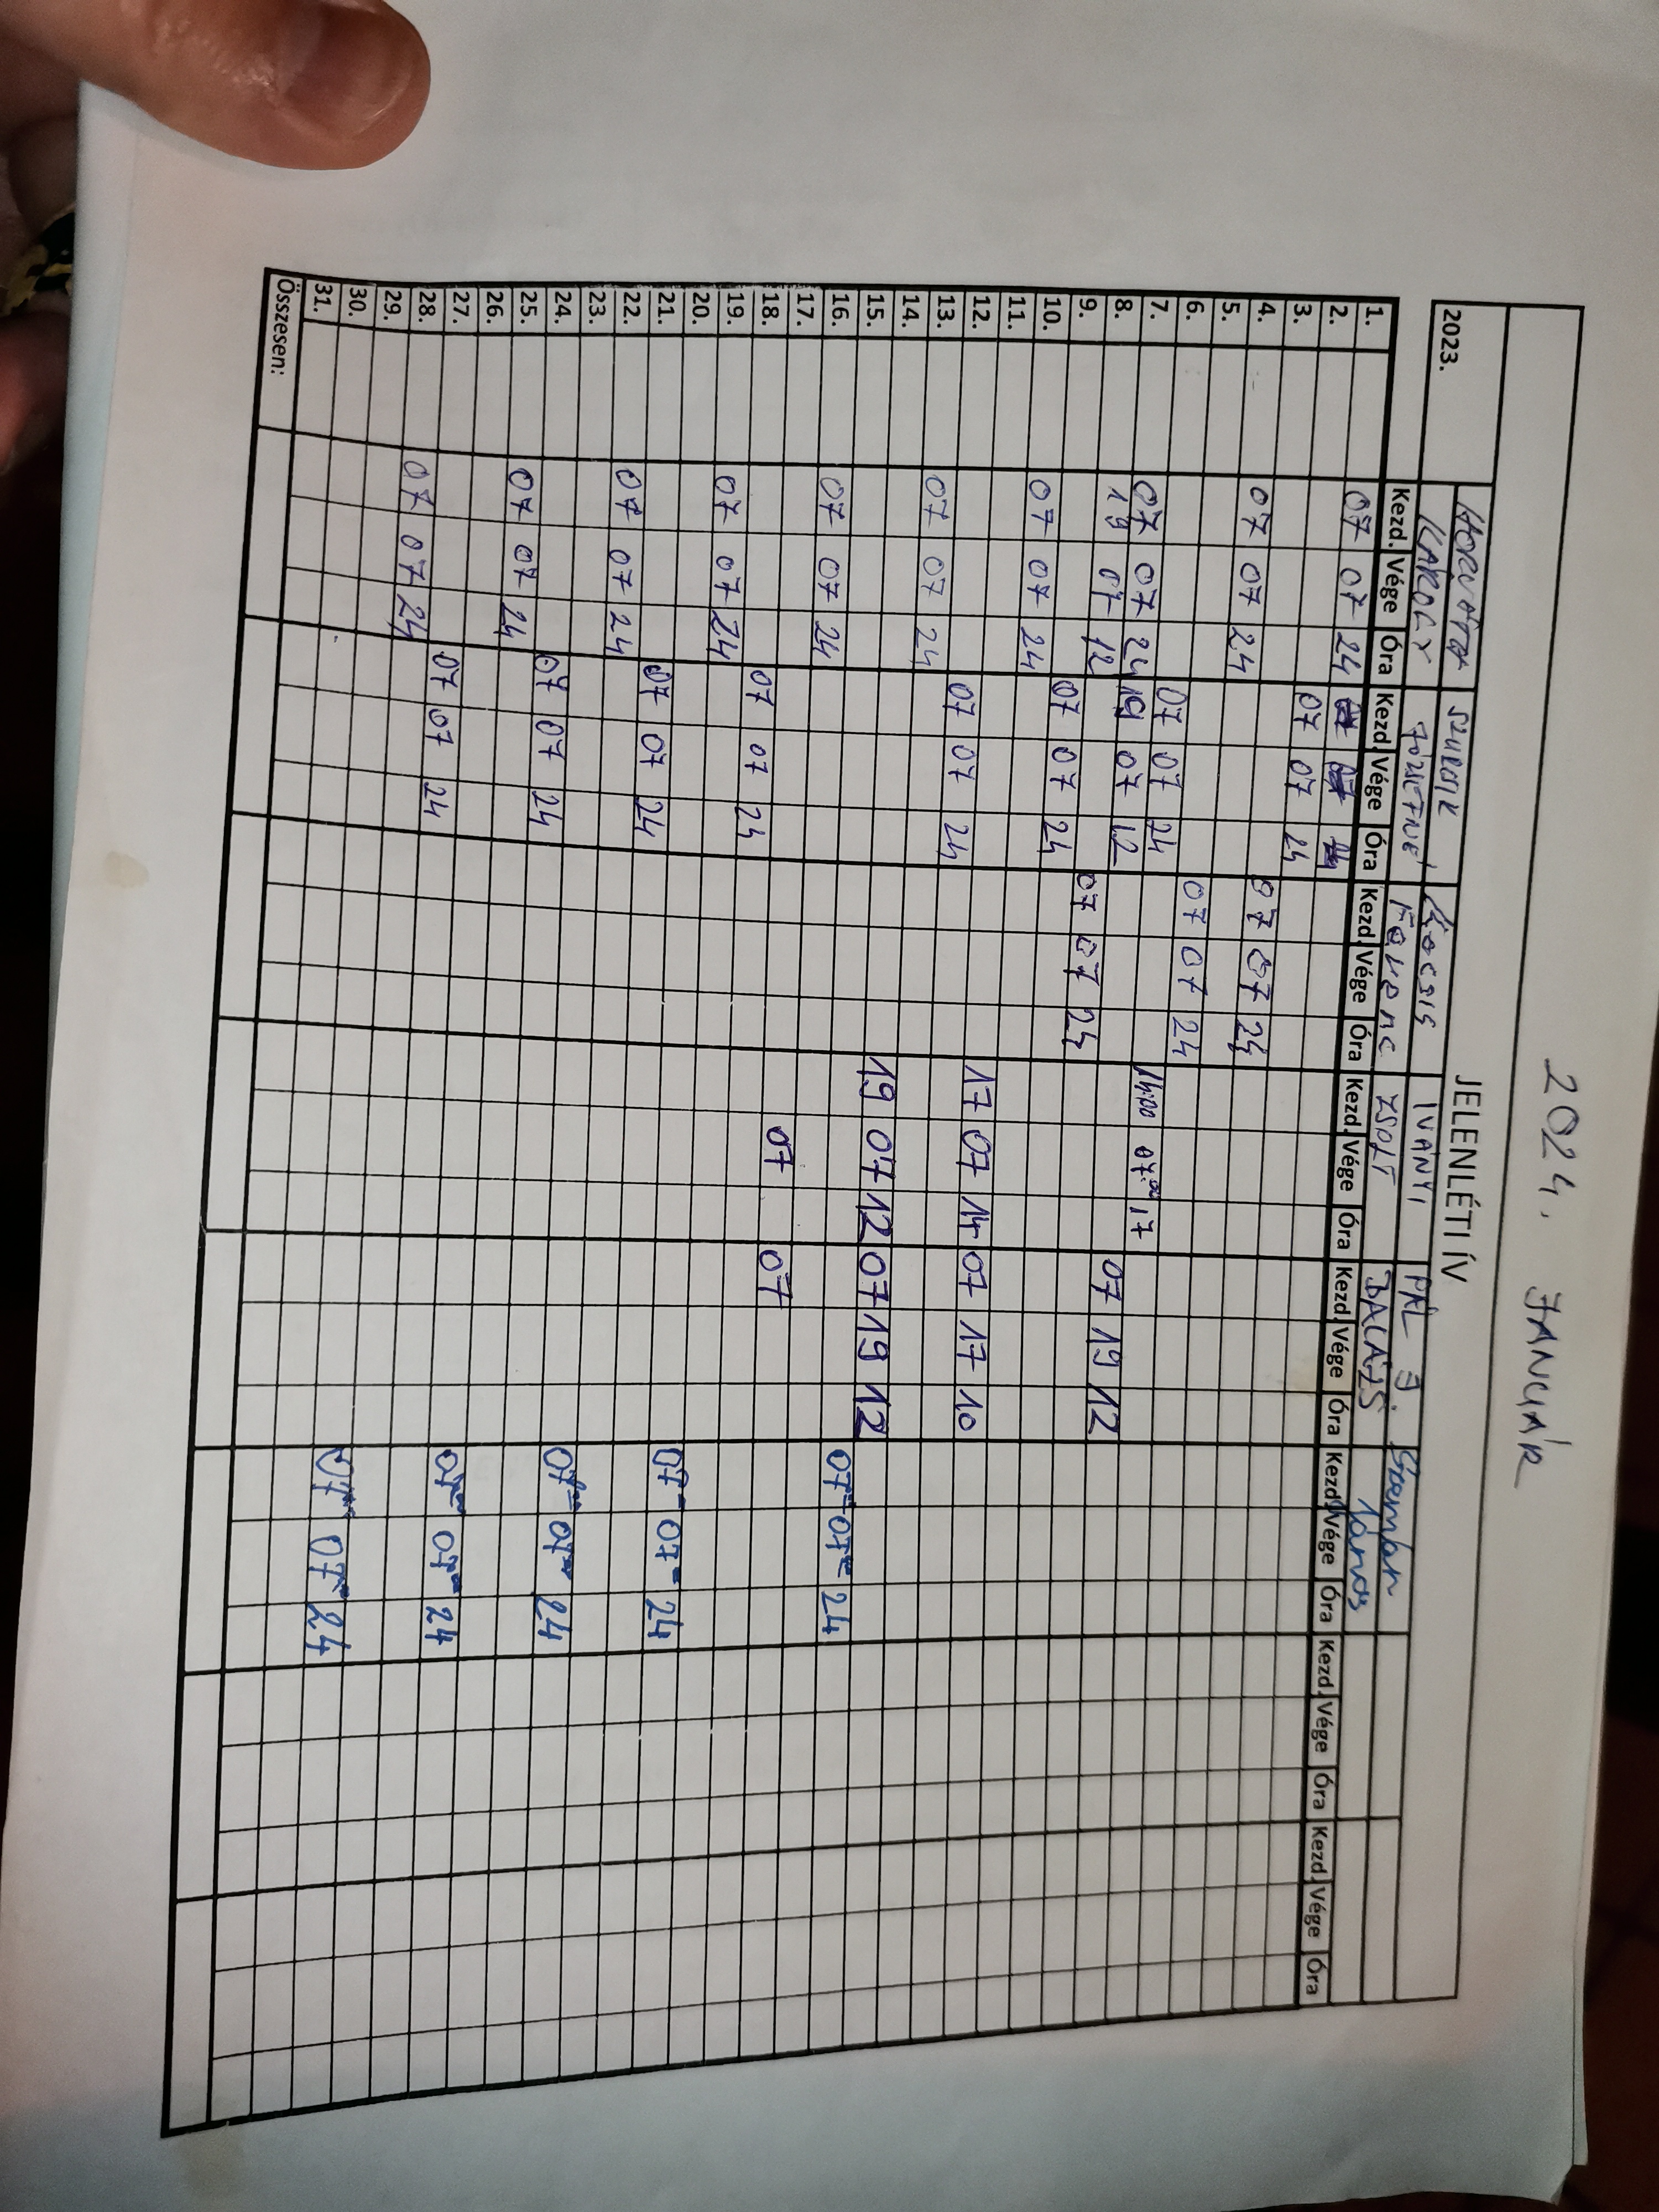 2024. JANUÁR
JELENLÉTI ÍV
2023. HORVÁTH KÁROLY SZURDIK JÓZSEFNÉ Kocsis Ferenc IVÁNYI ZSOLT PÁL J BALÁZS János
Kezd. Vége Óra Kezd. Vége Óra Kezd. Vége Óra Kezd. Vége Óra Kezd. Vége Óra Kezd. Vége Óra Kezd. Vége Óra Kezd. Vége Óra
1. 07 07 24
2. 07 07 24
3. 07 07 24
4. 07 07 24
5. 07 07 24
6. 07 07 24 14:00 07:00 17
7. 07 07 24 19 07 12 07 19 12
8. 19 07 12 07 07 24
9. 07 07 24
10. 07 07 24
11. 17 07 14 07 17 10
12. 07 07 24
13. 07 07 24
14. 19 07 12 07 19 12
15. 07 07 24
16. 07 07 24
17. 07 07
18. 07 07 24
19. 07 07 24
20. 07 07 24
21. 07 07 24
22. 07 07 24
23. 07 07 24
24. 07 07 24
25. 07 07 24
26. 07 07 24
27. 07 07 24
28. 07 07 24
29. 07 07 24
30.
31.
Összesen: